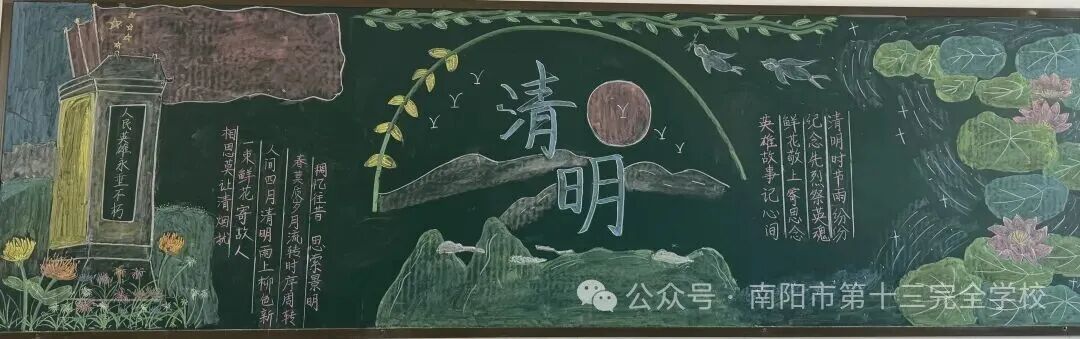 人民英雄永垂不朽
清明
忆往昔 思索景明
月流转时序周转
人间四月清明雨上柳色新
一束鲜花寄故人
相思莫让清烟扰
清明时节雨纷纷
纪念先烈祭英魂
鲜花敬上寄思念
英雄故事记心间
公众号 · 南阳市第十三完全学校